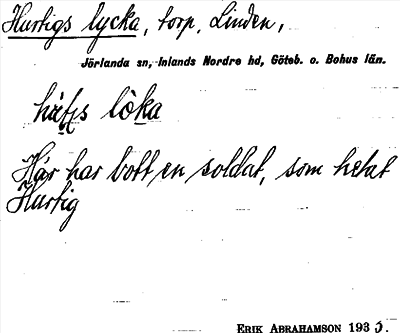 Hurtigs lycka, torp, Linden,
Jörlanda sn, Inlands Nordre hd, Göteb. o. Bohus län.
lòka
Här har bott en soldat, som hetat
Hurtig
ERIK ABRAHAMSON 1933.